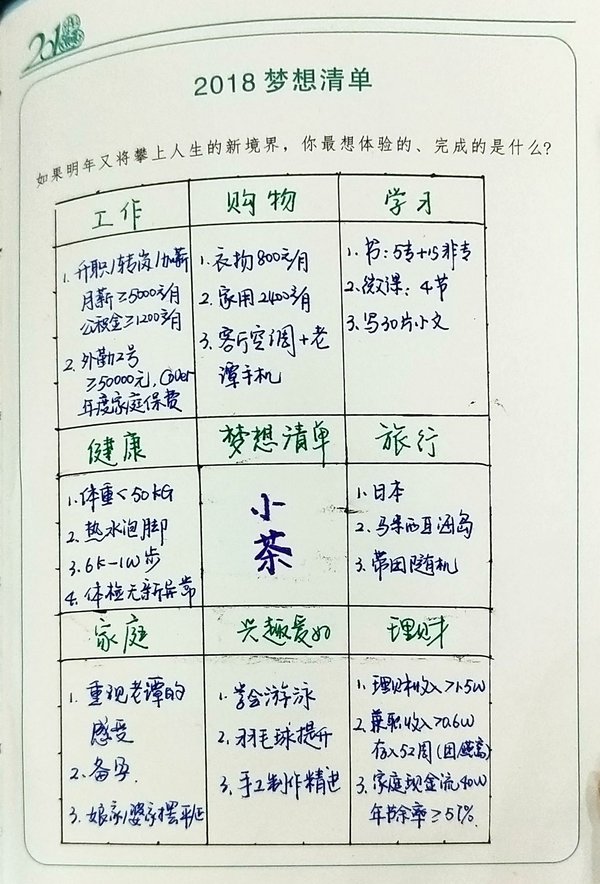 2018
2018 梦想清单
如果明年又将攀上人生的新境界，你最想体验的、完成的是什么？
工作
购物
学习
1. 升职/转岗/加薪
月薪≥5000元/月
公积金≥1200元/月
2. 外勤2号
≥50000元, Cover
年度家庭保费
1. 衣物800元/月
2. 家用2400元/月
3. 客厅空调+老
谭手机
1. 书：5专+15非专
2. 微课：4节
3. 写30片小文
健康
梦想清单
旅行
1. 体重<50KG
2. 热水泡脚
3. 6K-1W步
4. 体检无新异常
小
茶
1. 日本
2. 马来西亚海岛
3. 带团随机
家庭
兴趣爱好
理财
1. 重视老谭的
感受
2. 备孕
3. 娘家/婆家摆平/正
1. 学会游泳
2. 羽毛球提升
3. 手工制作精进
1. 理财收入>1.5W
2. 兼职收入>0.6W
存入52周
3. 家庭现金流40W
年结余率≥51%